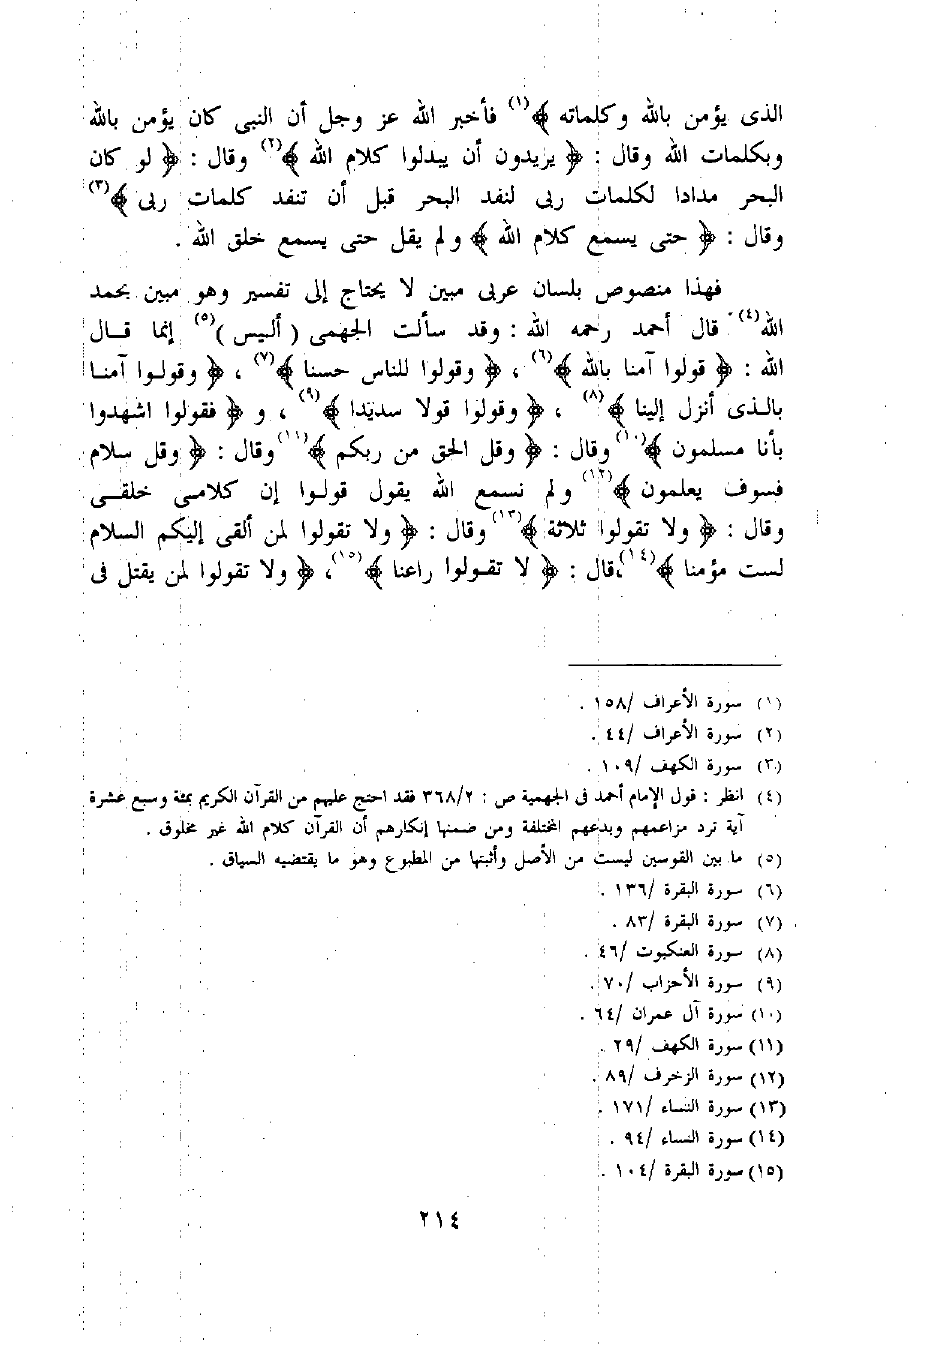 الذى يؤمن بالله وكلماته ﴾(١) فأخبر الله عز وجل أن النبى كان يؤمن بالله
وبكلمات الله وقال : ﴿ يريدون أن يبدلوا كلام الله ﴾(٢) وقال : ﴿ لو كان
البحر مدادا لكلمات ربى لنفد البحر قبل أن تنفد كلمات ربى ﴾(٣)
وقال : ﴿ حتى يسمع كلام الله ﴾ ولم يقل حتى يسمع خلق الله .
فهذا منصوص بلسان عربى مبين لا يحتاج إلى تفسير وهو مبين بحمد
الله(٤) قال أحمد رحمه الله : وقد سألت الجهمى ( أليس )(٥) إنما قال
الله : ﴿ قولوا آمنا بالله ﴾(٦) ، ﴿ وقولوا للناس حسنا ﴾(٧) ، ﴿ وقولوا آمنا
بالذى أنزل إلينا ﴾(٨) ، ﴿ وقولوا قولا سديدا ﴾(٩) ، و ﴿ فقولوا اشهدوا
بأنا مسلمون ﴾(١٠) وقال : ﴿ وقل الحق من ربكم ﴾(١١) وقال : ﴿ وقل سلام
فسوف يعلمون ﴾(١٢) ولم نسمع الله يقول قولوا إن كلامى خلقى
وقال : ﴿ ولا تقولوا ثلاثة ﴾(١٣) وقال : ﴿ ولا تقولوا لمن ألقى إليكم السلام
لست مؤمنا ﴾(١٤)،قال : ﴿ لا تقولوا راعنا ﴾(١٥)، ﴿ ولا تقولوا لمن يقتل فى
(١) سورة الأعراف /١٥٨ .
(٢) سورة الأعراف /٤٤ .
(٣) سورة الكهف /١٠٩ .
(٤) انظر : قول الإمام أحمد فى الجهمية ص : ٣٦٨/٢ فقد احتج عليهم من القرآن الكريم بمئة وسبع عشرة
آية ترد مزاعمهم وبدعهم المختلفة ومن ضمنها إنكارهم أن القرآن كلام الله غير مخلوق .
(٥) ما بين القوسين ليست من الأصل وأثبتها من المطبوع وهو ما يقتضيه السياق .
(٦) سورة البقرة /١٣٦ .
(٧) سورة البقرة /٨٣ .
(٨) سورة العنكبوت /٤٦ .
(٩) سورة الأحزاب /٧٠ .
(١٠) سورة آل عمران /٦٤ .
(١١) سورة الكهف /٢٩ .
(١٢) سورة الزخرف /٨٩ .
(١٣) سورة النساء /١٧١ .
(١٤) سورة النساء /٩٤ .
(١٥) سورة البقرة /١٠٤ .
٢١٤